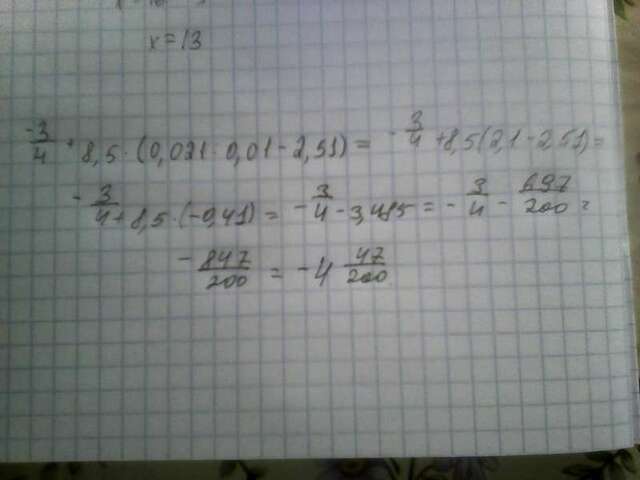 x = 13
-3/4 + 8,5 · (0,021 : 0,01 - 2,51) = - 3/4 + 8,5(2,1 - 2,51) =
- 3/4 + 8,5 · (-0,41) = - 3/4 - 3,485 = - 3/4 - 697/200 =
- 847/200 = -4 47/200